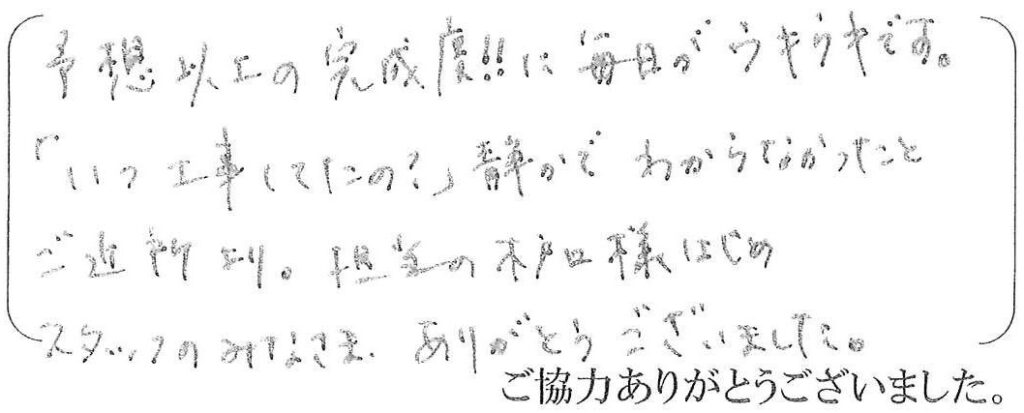 予想以上の完成度!!に毎日がウキウキです。
「いつ工事してたの?」静かでわからなかったと
ご近所より。担当の木戸口様はじめ
スタッフのみなさま、ありがとうございました。
ご協力ありがとうございました。